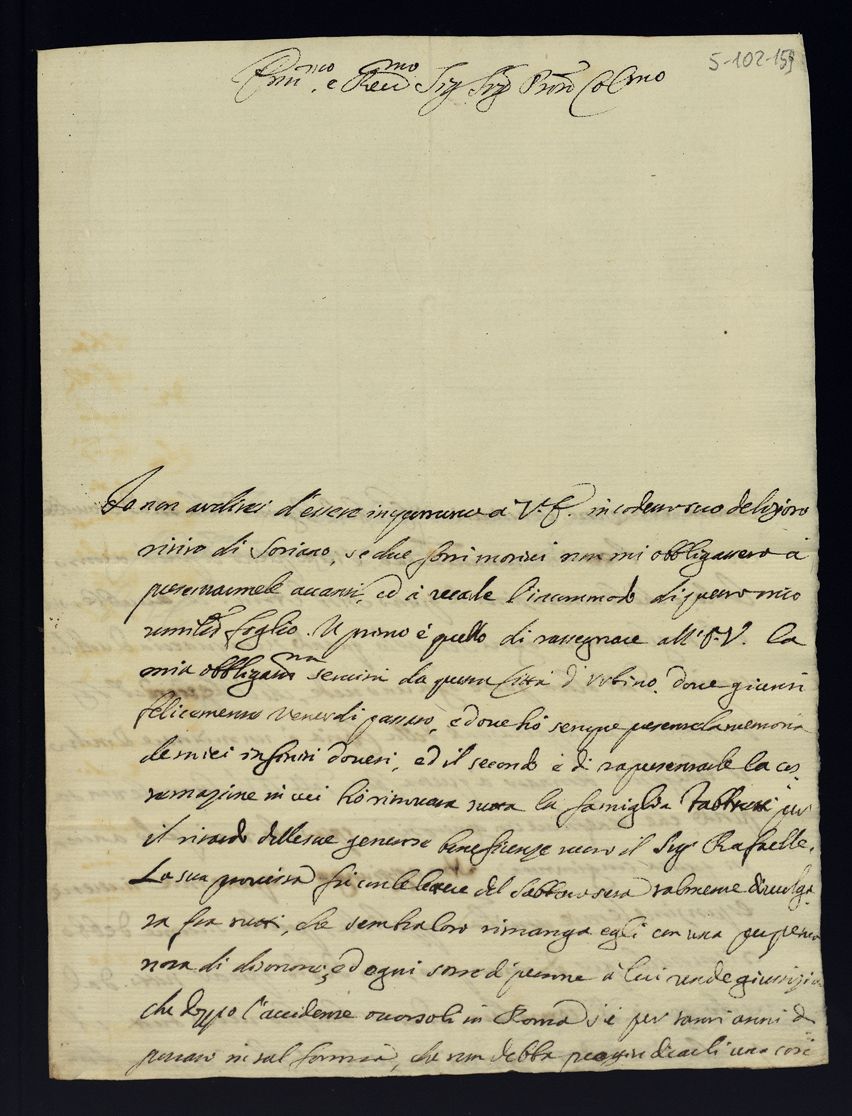 5-102-159
Em.mo e Rev.mo Sig Sig Pron Colmo
Io non ardirei d'essere importuno a V. E. in codesto suo delizioso
ritiro di Soriano, se due forti motivi non mi obbligassero à
presentarmele avanti, ed à recarle l'incommodo di questo mio
umil.mo foglio. Il primo è quello di rassegnare all'E. V. la
mia obbligat.ma servitù da questa Città d'Urbino, dove giunsi
felicemente Venerdi passato, e dove hò sempre presente la memoria
de miei infiniti doveri, ed il secondo è di rapresentarle la cos
ternazione in cui hò ritrovata tutta la famiglia per
il ritardo delle sue generose beneficenze verso il Sig.r Raffaelle.
La sua fù con le lettere del Sabbato sera talmente divulga
ta frà tutti, che sembra loro rimanga egli con una perpetua
nota di disonore, ed ogni sorte di persone à lui rende giustizia
che doppo l'accidente occorsoli in Roma s'è per tanti anni di
portato in tal forma, che non debba pregiudicarli una così